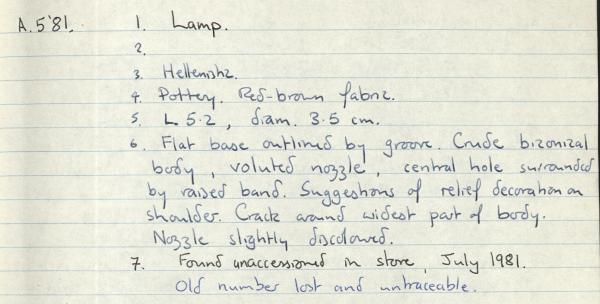 A.5'81. 1. Lamp.
2.
3. Hellenistic.
4. Pottery. Red-brown fabric.
5. L. 5.2, diam. 3.5 cm.
6. Flat base outlined by groove. Crude biconical
body, voluted nozzle, central hole surrounded
by raised band. Suggestions of relief decoration on
shoulder. Crack around widest part of body.
Nozzle slightly discoloured.
7. Found unaccessioned in store, July 1981.
Old number lost and untraceable.